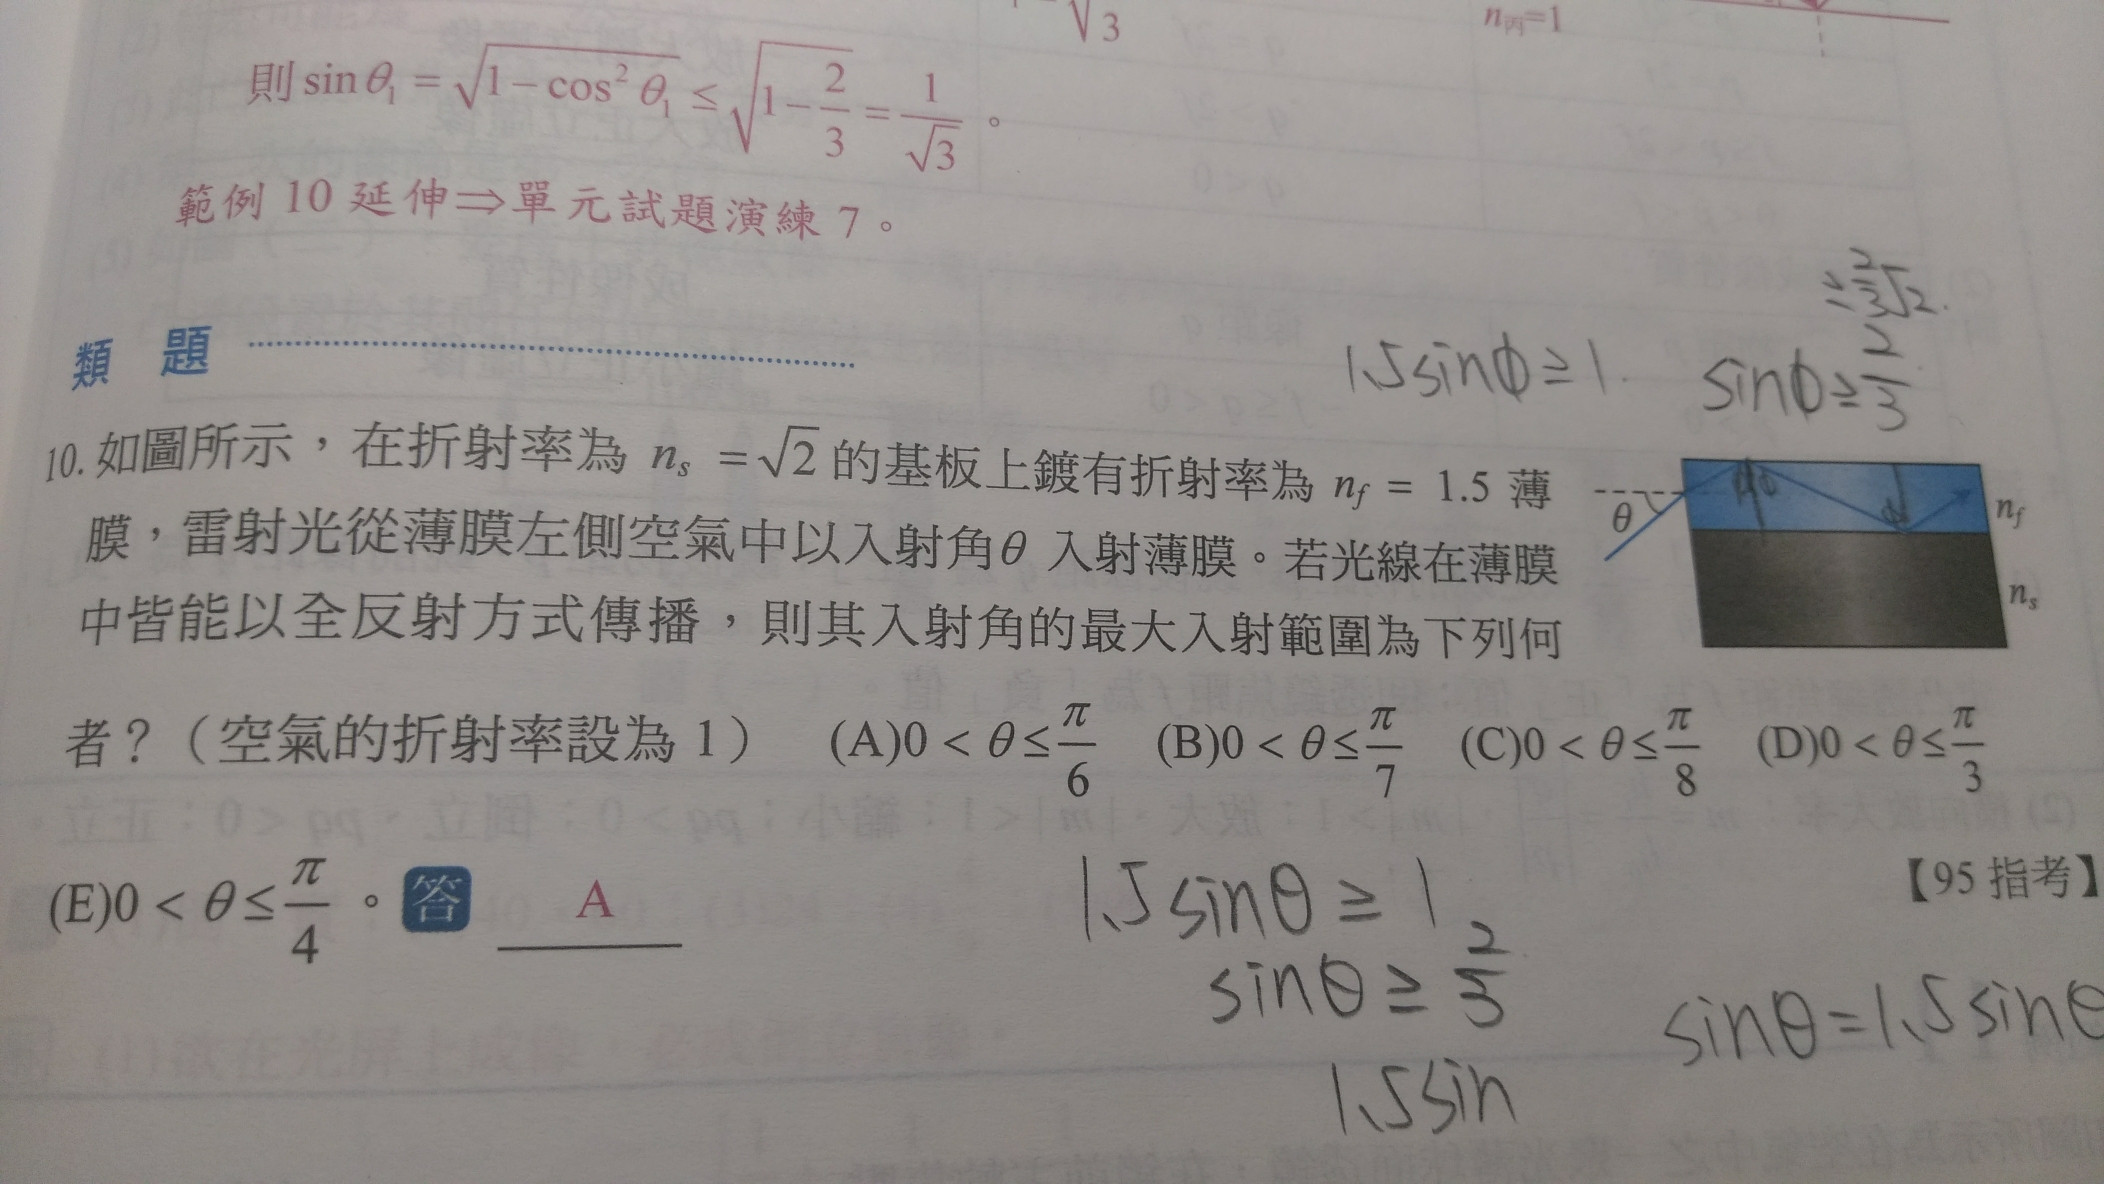 √3
n丙=1
則 sin θ₁ = √(1 − cos² θ₁) ≤ √(1 − 2/3) = 1/√3 。
範例 10 延伸⇒單元試題演練 7。
類 題
≥ 2/3 √2.
1.5 sinϕ ≥ 1. sinϕ ≥ 2/3
10. 如圖所示，在折射率為 nₛ = √2 的基板上鍍有折射率為 n_f = 1.5 薄
膜，雷射光從薄膜左側空氣中以入射角θ 入射薄膜。若光線在薄膜
中皆能以全反射方式傳播，則其入射角的最大入射範圍為下列何
者？（空氣的折射率設為 1） (A)0 < θ ≤ π/6 (B)0 < θ ≤ π/7 (C)0 < θ ≤ π/8 (D)0 < θ ≤ π/3
(E)0 < θ ≤ π/4 。 答 A
【95 指考】
θ
n_f
nₛ
1.5 sinθ ≥ 1
sinθ ≥ 2/3
1.5 sin
sinθ = 1.5 sinθ